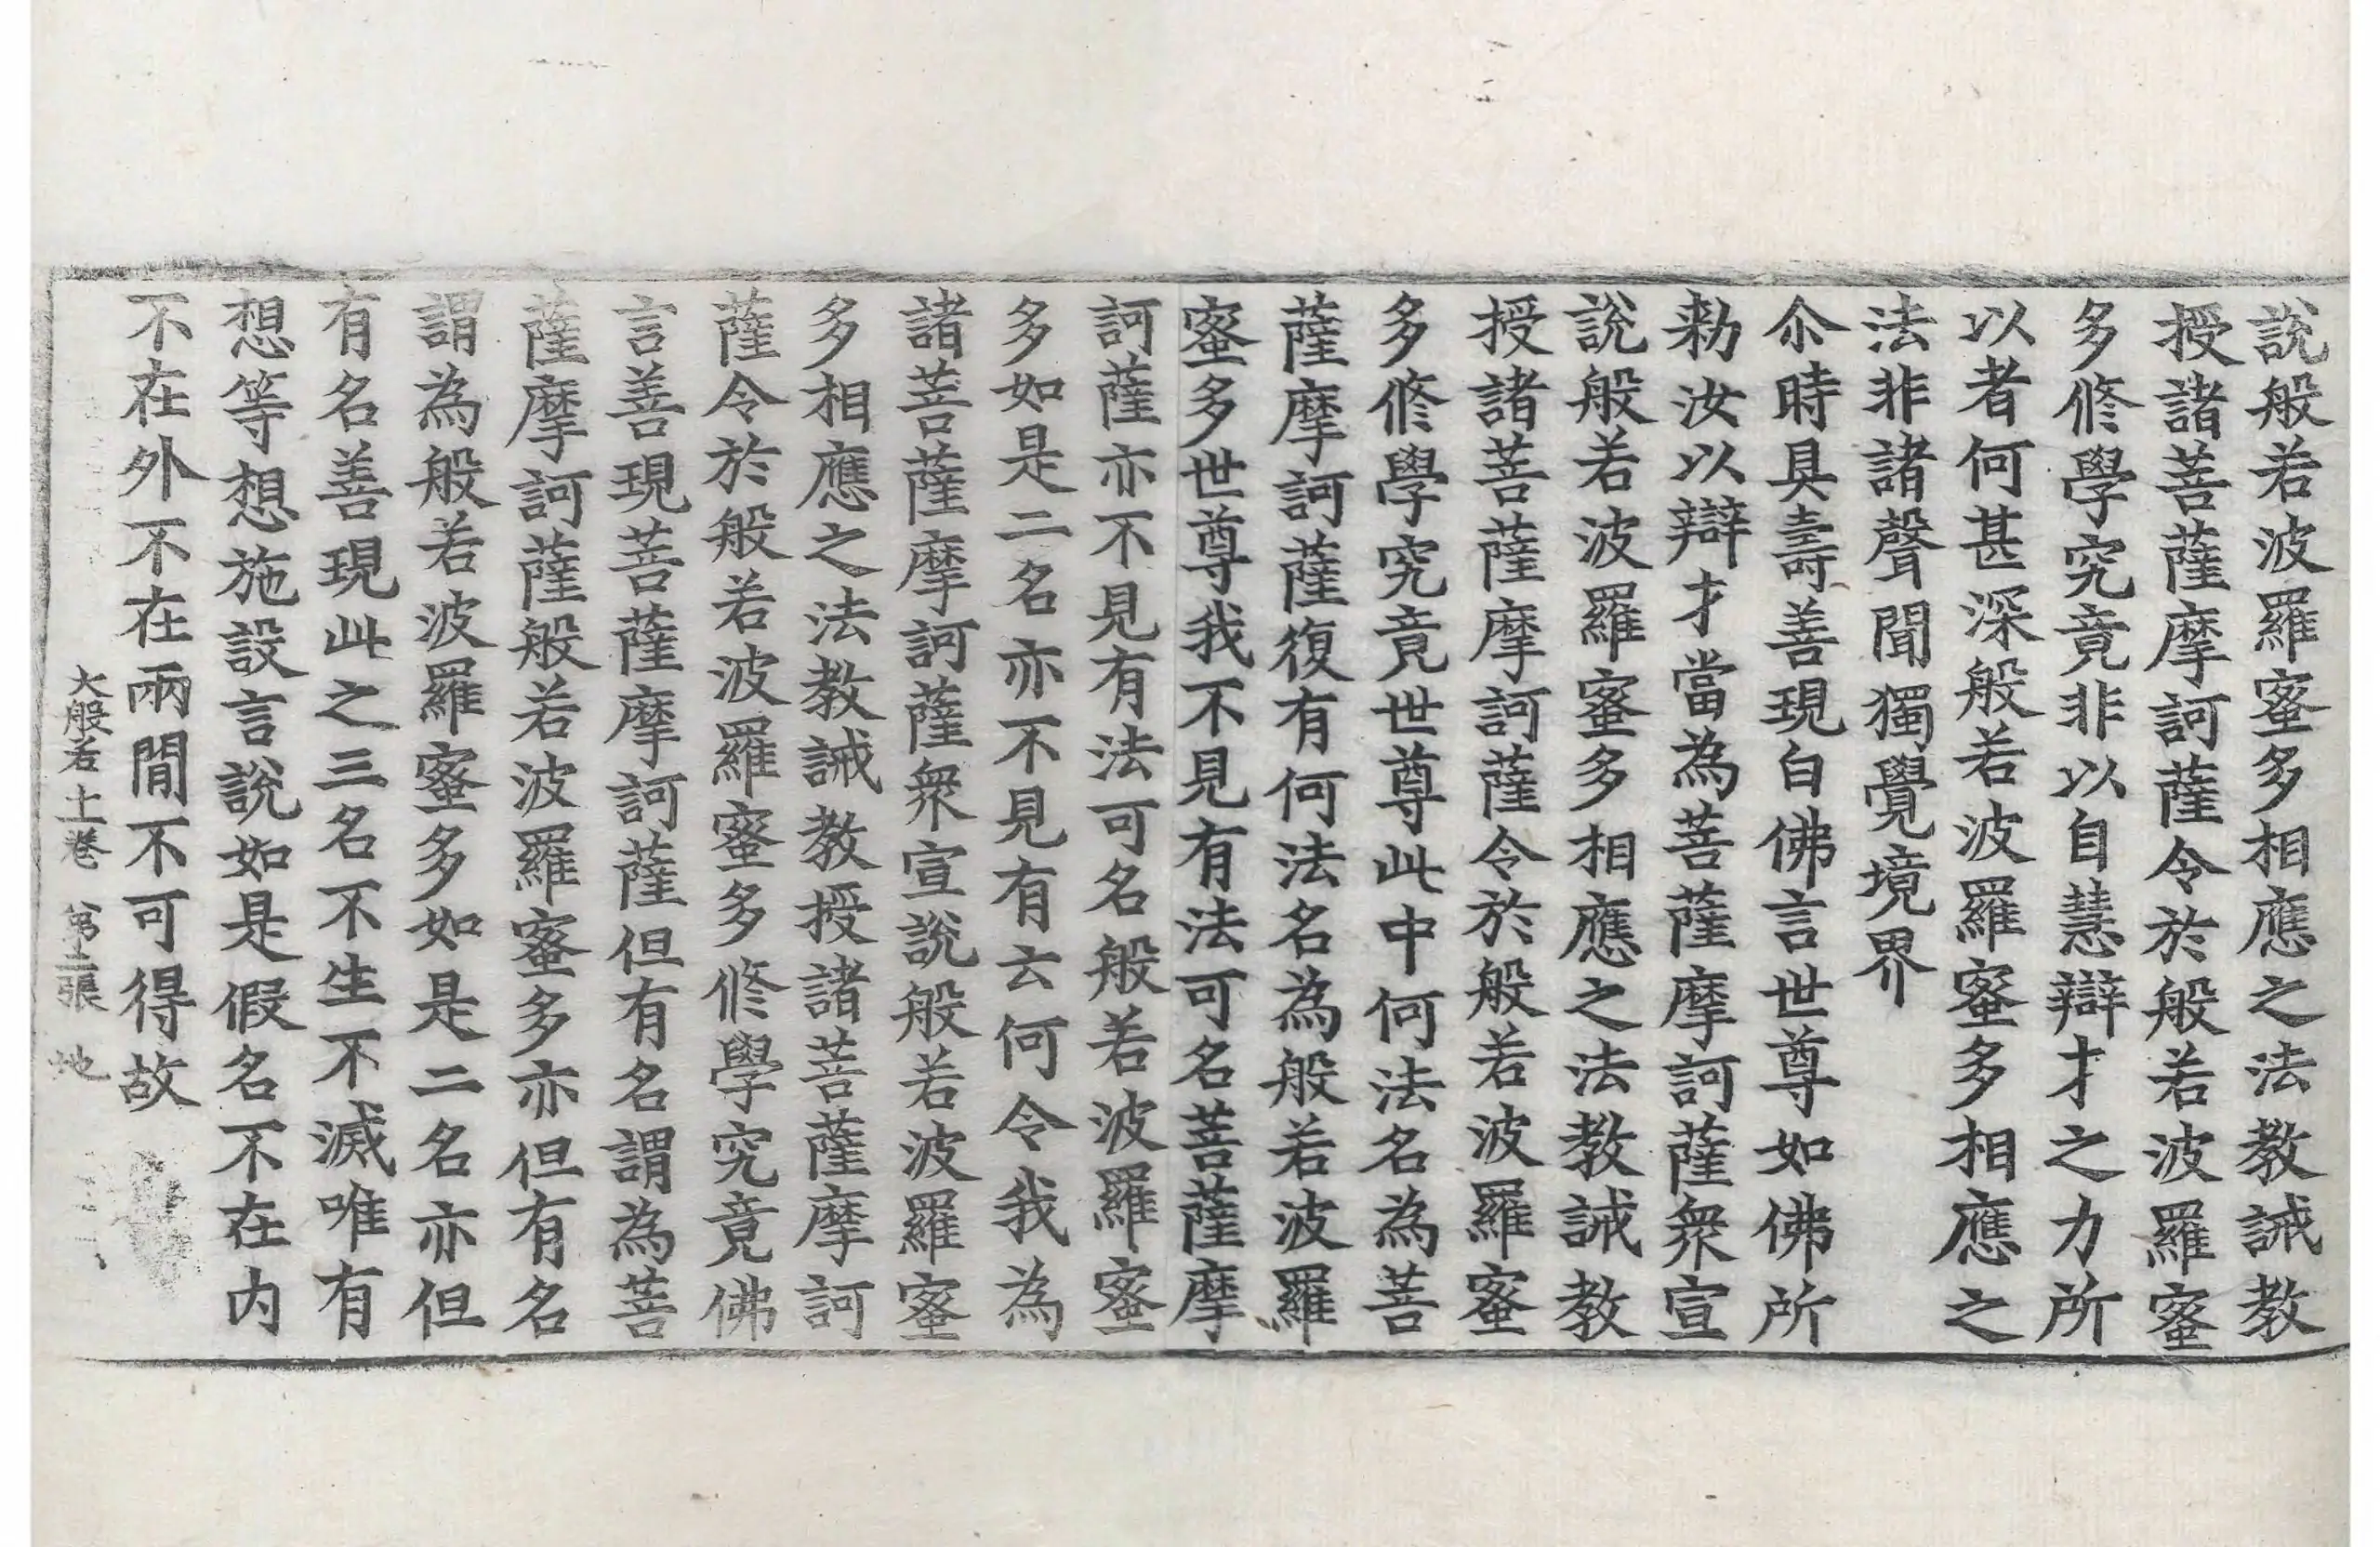 說般若波羅蜜多相應之法教誡教
授諸菩薩摩訶薩令於般若波羅蜜
多修學究竟非以自慧辯才之力所
以者何甚深般若波羅蜜多相應之
法非諸聲聞獨覺境界
尒時具壽善現白佛言世尊如佛所
勑汝以辯才當為菩薩摩訶薩衆宣
說般若波羅蜜多相應之法教誡教
授諸菩薩摩訶薩令於般若波羅蜜
多修學究竟世尊此中何法名為菩
薩摩訶薩復有何法名為般若波羅
蜜多世尊我不見有法可名菩薩摩
訶薩亦不見有法可名般若波羅蜜
多如是二名亦不見有云何令我為
諸菩薩摩訶薩衆宣說般若波羅蜜
多相應之法教誡教授諸菩薩摩訶
薩令於般若波羅蜜多修學究竟佛
言善現菩薩摩訶薩但有名謂為菩
薩摩訶薩般若波羅蜜多亦但有名
謂為般若波羅蜜多如是二名亦但
有名善現此之三名不生不滅唯有
想等想施設言說如是假名不在内
不在外不在兩間不可得故
大般若十一卷 第張 地